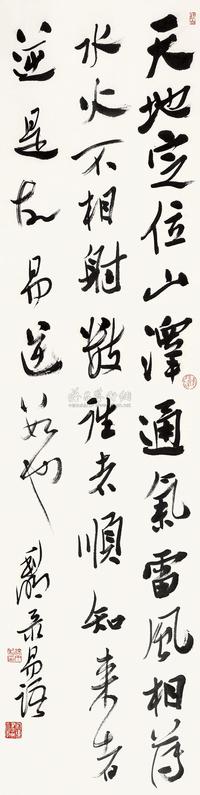 天地定位山澤通氣雷風相薄
水火不相射數往者順知来者
逆是故易逆数也
录易語